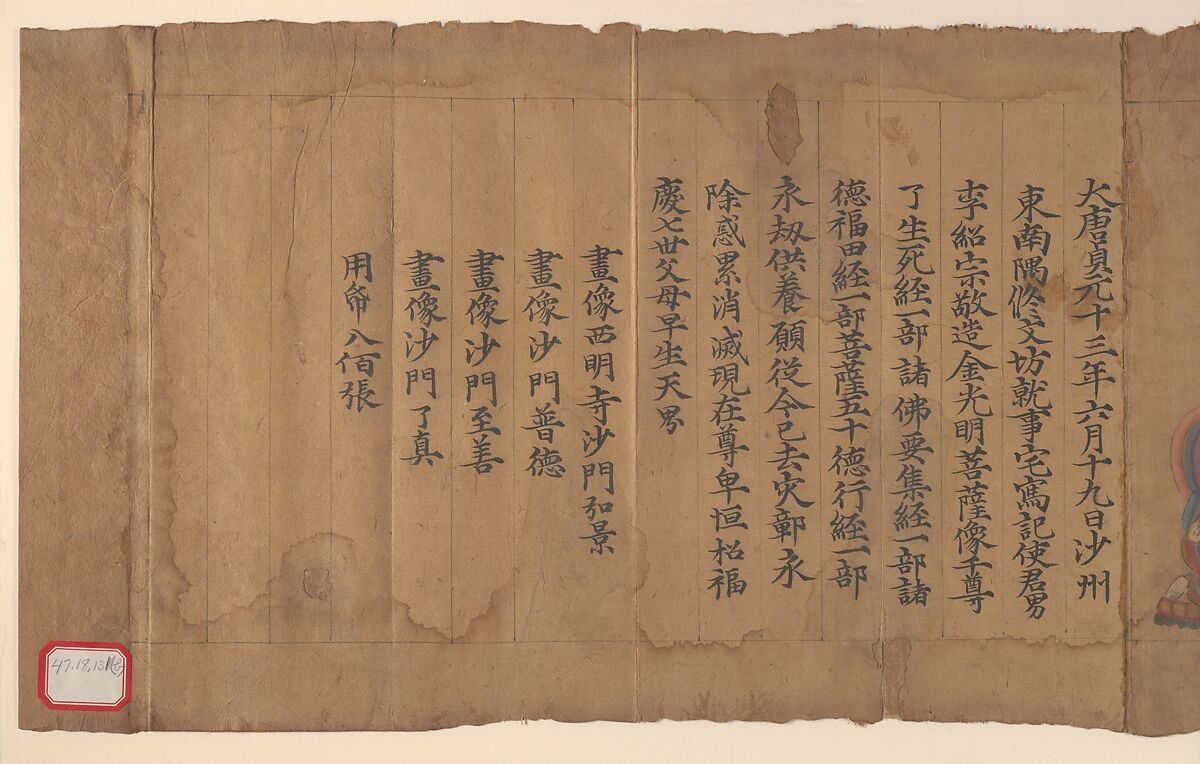 大唐貞元十三年六月十九日沙州
東南隅脩文坊就事宅寫記使君男
李紹宗敬造金光明菩薩像千尊
了生死経一部諸佛要集経一部諸
德福田経一部菩薩五十德行経一部
永劫供養願従今已去灾鄣永
除惑累消滅現在尊卑恒招福
慶七世父母早生天界
畫像西明寺沙門弘景
畫像沙門普德
畫像沙門至善
畫像沙門了真
用帋八佰張
47.18.131